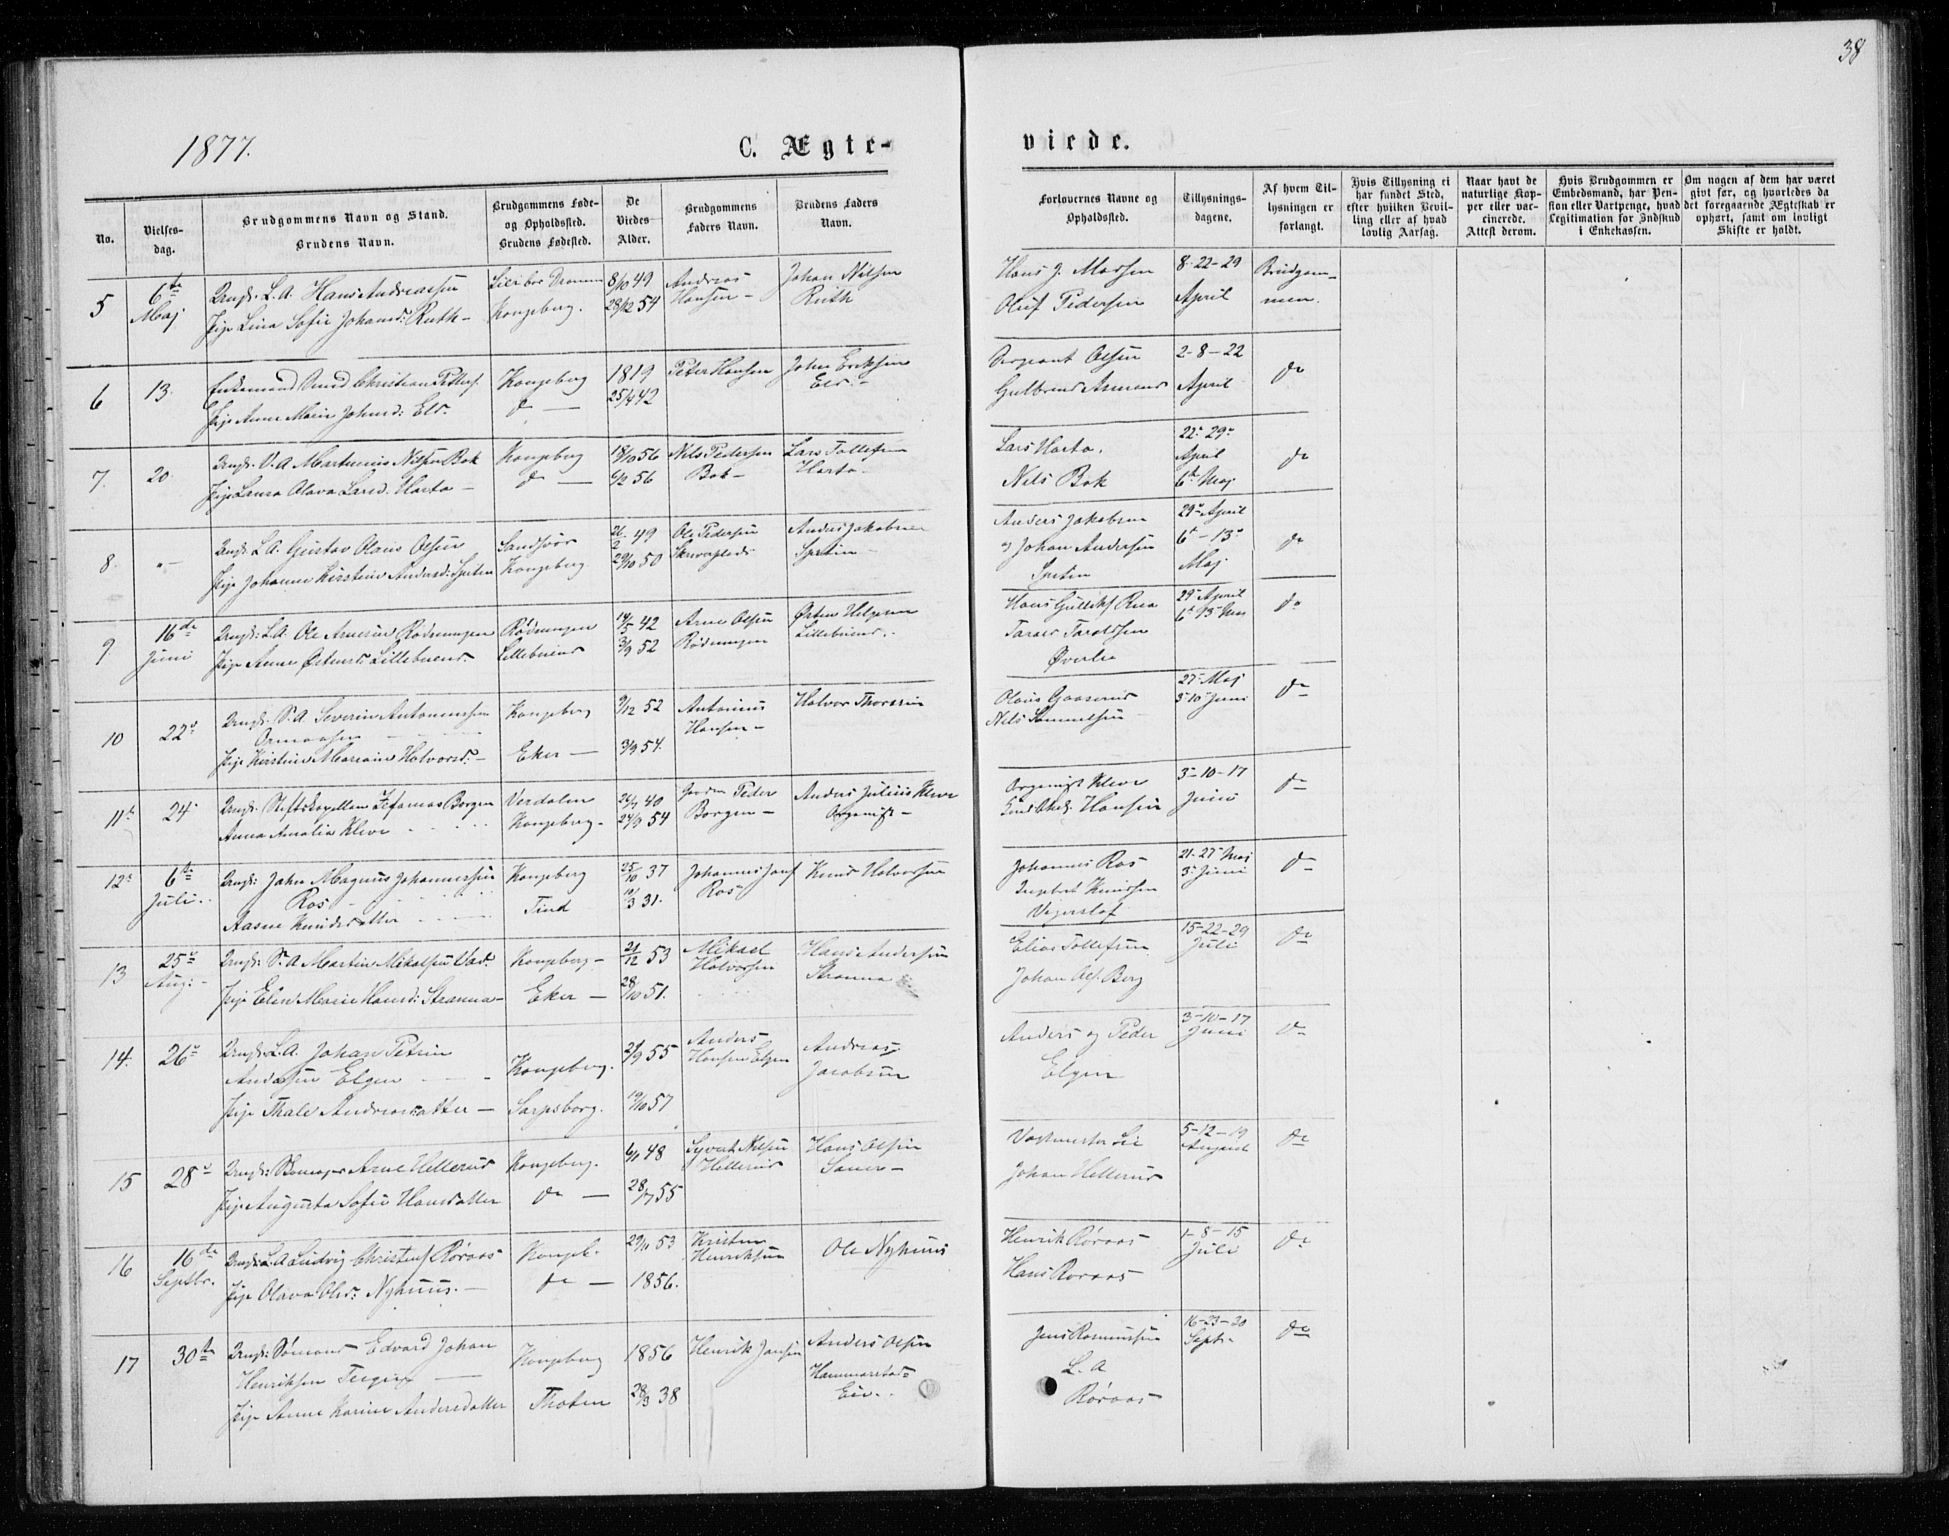 38
1877.
C. Ægte-
viede.
No.
Vielses-
dag.
Brudgommens Navn og Stand.
Brudens Navn.
Brudgommens Føde-
og Opholdssted.
Brudens Fødested.
De
Viedes
Alder.
Brudgommens
Faders Navn.
Brudens Faders
Navn.
Forlovernes Navne og
Opholdssted.
Tillysnings-
dagene.
Af hvem Til-
lysningen er
forlangt.
Hvis Tillysning ei
har fundet Sted,
efter hvilken Bevil-
ling eller af hvad
lovlig Aarsag.
Naar havt de
naturlige Kop-
per eller vac-
cinerede.
Attest derom.
Hvis Brudgommen er
Embedsmand, har Pen-
sion eller Vartpenge, hvad
Legitimation for Indskud
i Enkekassen.
Om nogen af dem har været
givt før, og hvorledes da
det foregaaende Ægteskab er
ophørt, samt om lovligt
Skifte er holdt.
5
6te
Maj
Ungk. L. A. Hans Andreassen
Pige Lina Sofie Johansd: Ruth
Kongsberg.
8/10 49
28/12 54
Andreas
Hansen
Johan Nilsen
Ruth
Hans J. Madsen
Oluf Pedersen
8-22-29
April
Brudgom-
men.
6
13.
Enkemand Christian
Pige Anne Marie Johnsd:
Kongsberg
do
1819
25/4 42
Peter Hansen
John Eriksen
Sergeant Olsen
Gulbrand
2-8-22
April
do
7.
20.
Ungk. V. A. Martinius Nilsen Bok
Pige Laura Olava Larsd. Harto
Kongsberg
do
18/10 56
6/2 56
Nils Pedersen
Bok
Lars Tollefsen
Harto
Lars Harto.
Nils Bok
22-29
April
6te Maj
do
8.
Ungk. L. A. Gustav Olaus Olsen
Pige Johanne Kirstine Andersd:
Sandsvær
Kongsberg
26/2 49
29/10 50
Ole Pedersen
Anders Jakobsen
Anders Jakobsen
og Johan Andersen
29 April
6-13
Maj
do
9
16de
Juni
Ungk: L. A. Ole Arnesen Rødningen
Pige Anne Østensd: Lillebuend.
Rødningen
Lillebuend
14/5 42
3/9 52
Arne Olsen
Rødningen
Østen Helgesen
Lillebuend.
Hans
Øverlie
29 April
6-13 Maj
do
10
22
Ungk. S. A. Severin Antoniussen
Pige Kirstine Mariane Halvorsd.
Kongsberg
Eker
9/12 52
3/9 54.
Antonius
Hansen
Halvor Thoresen
Nils Samuelsen
27 Maj
3-10 Juni
do
11
24
Ungk. Stiftskapellan Borgen
Anna Amalia Kleve
Verdalen
Kongsberg
26/7 40
24/3 54
Peder
Borgen
Anders Julius Kleve
Organist
Organist Kleve
Hansen
3-10-17
Juni
do
12
6te
Juli.
Ungk: John Magnus Johannessen
Ros
Aasne Knudsdatter
Kongsberg
Tind
25/10 37
12/3 31.
Johannes
Ros
Knud Halvorsen
Johannes Ros
Ingebret Knudsen
21-27 Maj
3 Juni
do
13
25
Aug:
Ungk: S. A. Martin Mikalsen
Pige Elen Marie Hansd: Stranna
Kongsberg
Eker
21/12 53
28/10 51.
Mikael
Halvorsen
Hans Andersen
Stranna
Elias Tollefsen
Johan Ols. Berg
15-22-29
Juli
do
14.
26
Ungk: L. A. Johan
Andersen Elgen
Pige Thale Andreasdatter
Kongsberg.
Sarpsborg.
2/9 55
19/10 57
Anders
Hansen Elgen
Andreas
Jacobsen
Anders og Peder
Elgen
3-10-17
Juni
do
15
28
Ungk: Arne Hellerud
Pige Augusta Sofie Hansdatter
Kongsberg.
do
6/1 48
28/7 55
Syvert Nilsen
Hellerud
Hans Olsen
Johan Hellerud
5-12-19
August
do
16
16de
Septbr.
Ungk: L. A. Ludvig Christens. Røraas
Pige Olava Olsd: Nyhuus.
Kongsb.
do
29/11 53
1856.
Kristen
Henriksen
Ole Nyhuus
Henrik Røraas
Hans Røraas
1-8-15
Juli
do
17
30te
Ungk: Sømand Edvard Johan
Henriksen
Pige Anne Karine Andersdatter
Kongsberg
Thoten
1856
28/3 38
Henrik Jansen
Anders Olsen
Hammerstad
Eie.
Jens Rasmussen
L. A
Røraas
16-23-30
Sept.
do